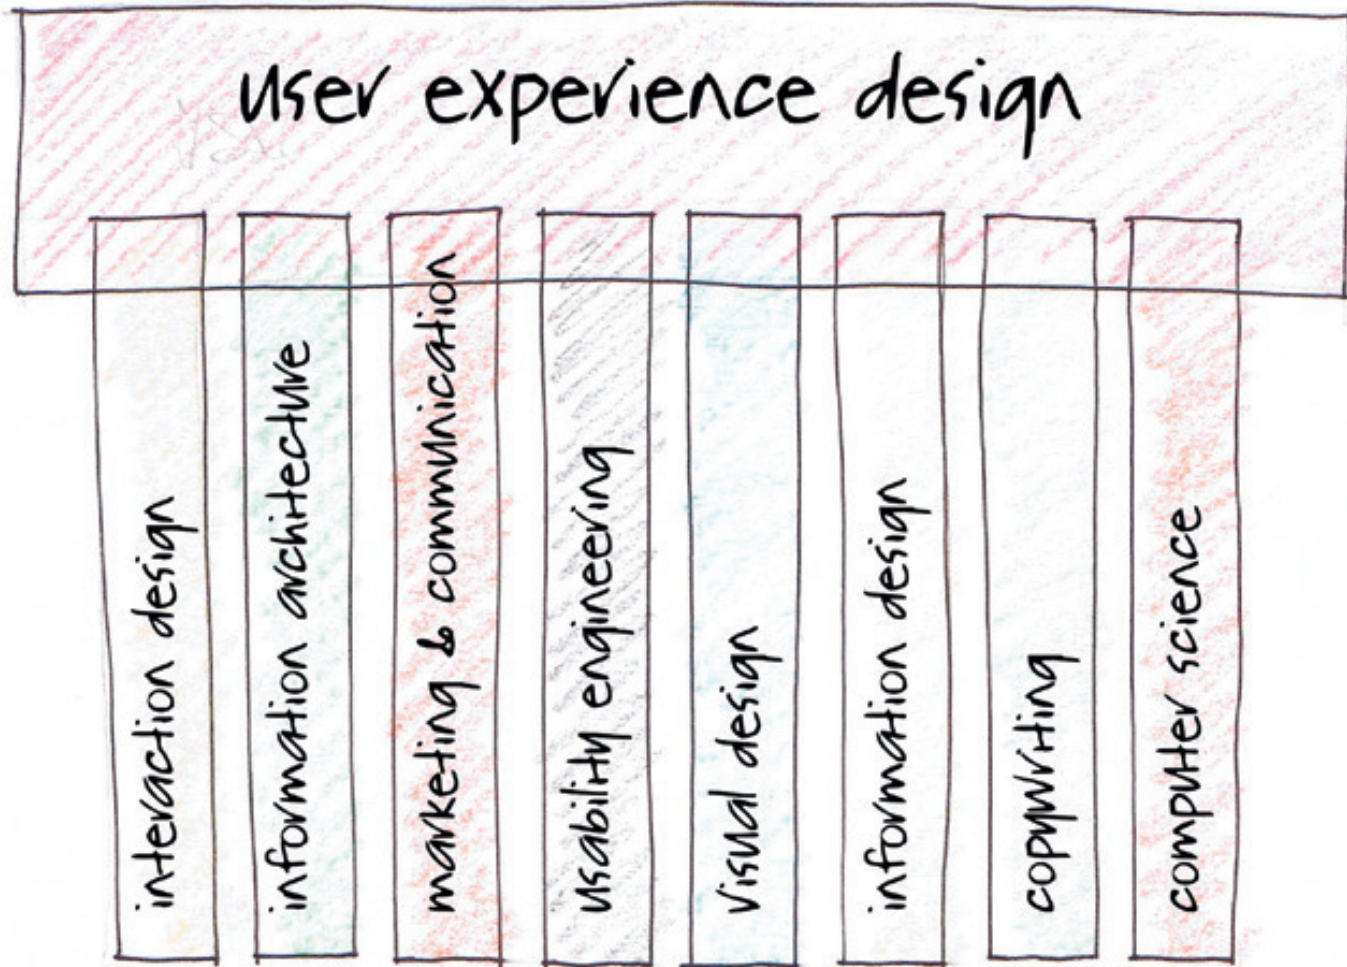 user experience design
interaction design
information architecture
marketing & communication
usability engineering
visual design
information design
copywriting
computer science